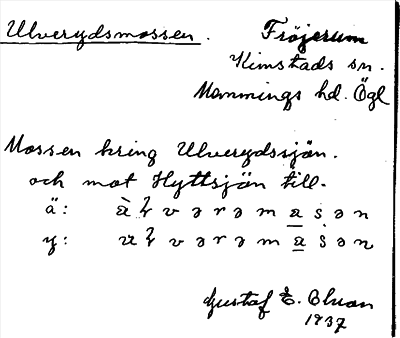 Ulverydsmossen. Fröjerum
Kimstads sn.
Memmings hd. Ögl
Mossen kring Ulverydssjön.
och mot Hyttsjön till.
ä:
y:
Gustaf E.
1937